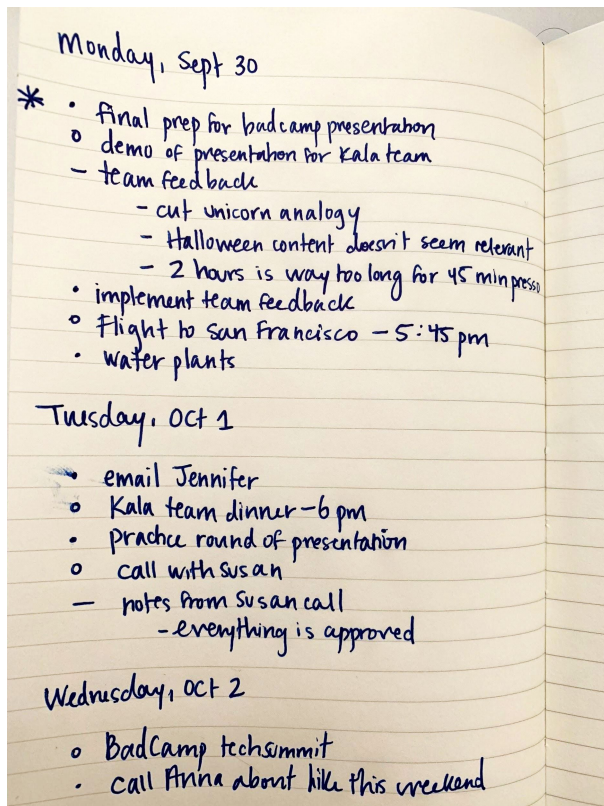 Monday, Sept 30
* • final prep for badcamp presentation
o demo of presentation for Kala team
— team feedback
- cut unicorn analogy
- Halloween content doesn't seem relevant
- 2 hours is way too long for 45 min presso
• implement team feedback
o Flight to San Francisco - 5:45 pm
• water plants
Tuesday, Oct 1
• email Jennifer
o Kala team dinner - 6 pm
• practice round of presentation
o call with Susan
— notes from Susan call
- everything is approved
Wednesday, Oct 2
o BadCamp techsummit
• call Anna about hike this weekend